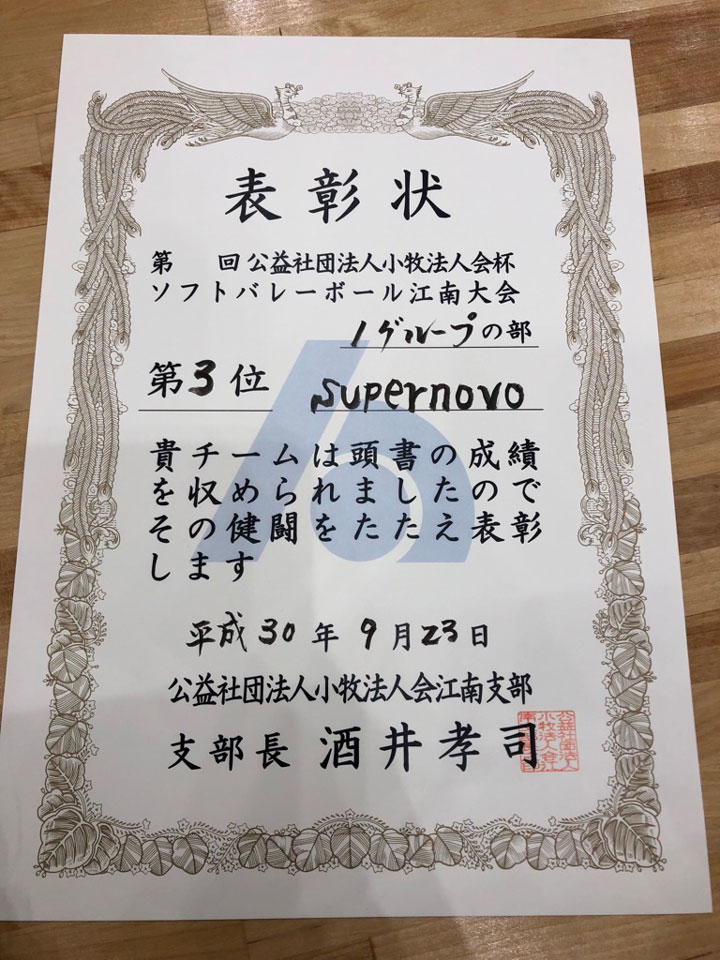 表彰状
第　　回公益社団法人小牧法人会杯
ソフトバレーボール江南大会
1グループの部
第3位 supernovo
貴チームは頭書の成績
を収められましたので
その健闘をたたえ表彰
します
平成30年9月23日
公益社団法人小牧法人会江南支部
支部長 酒井孝司